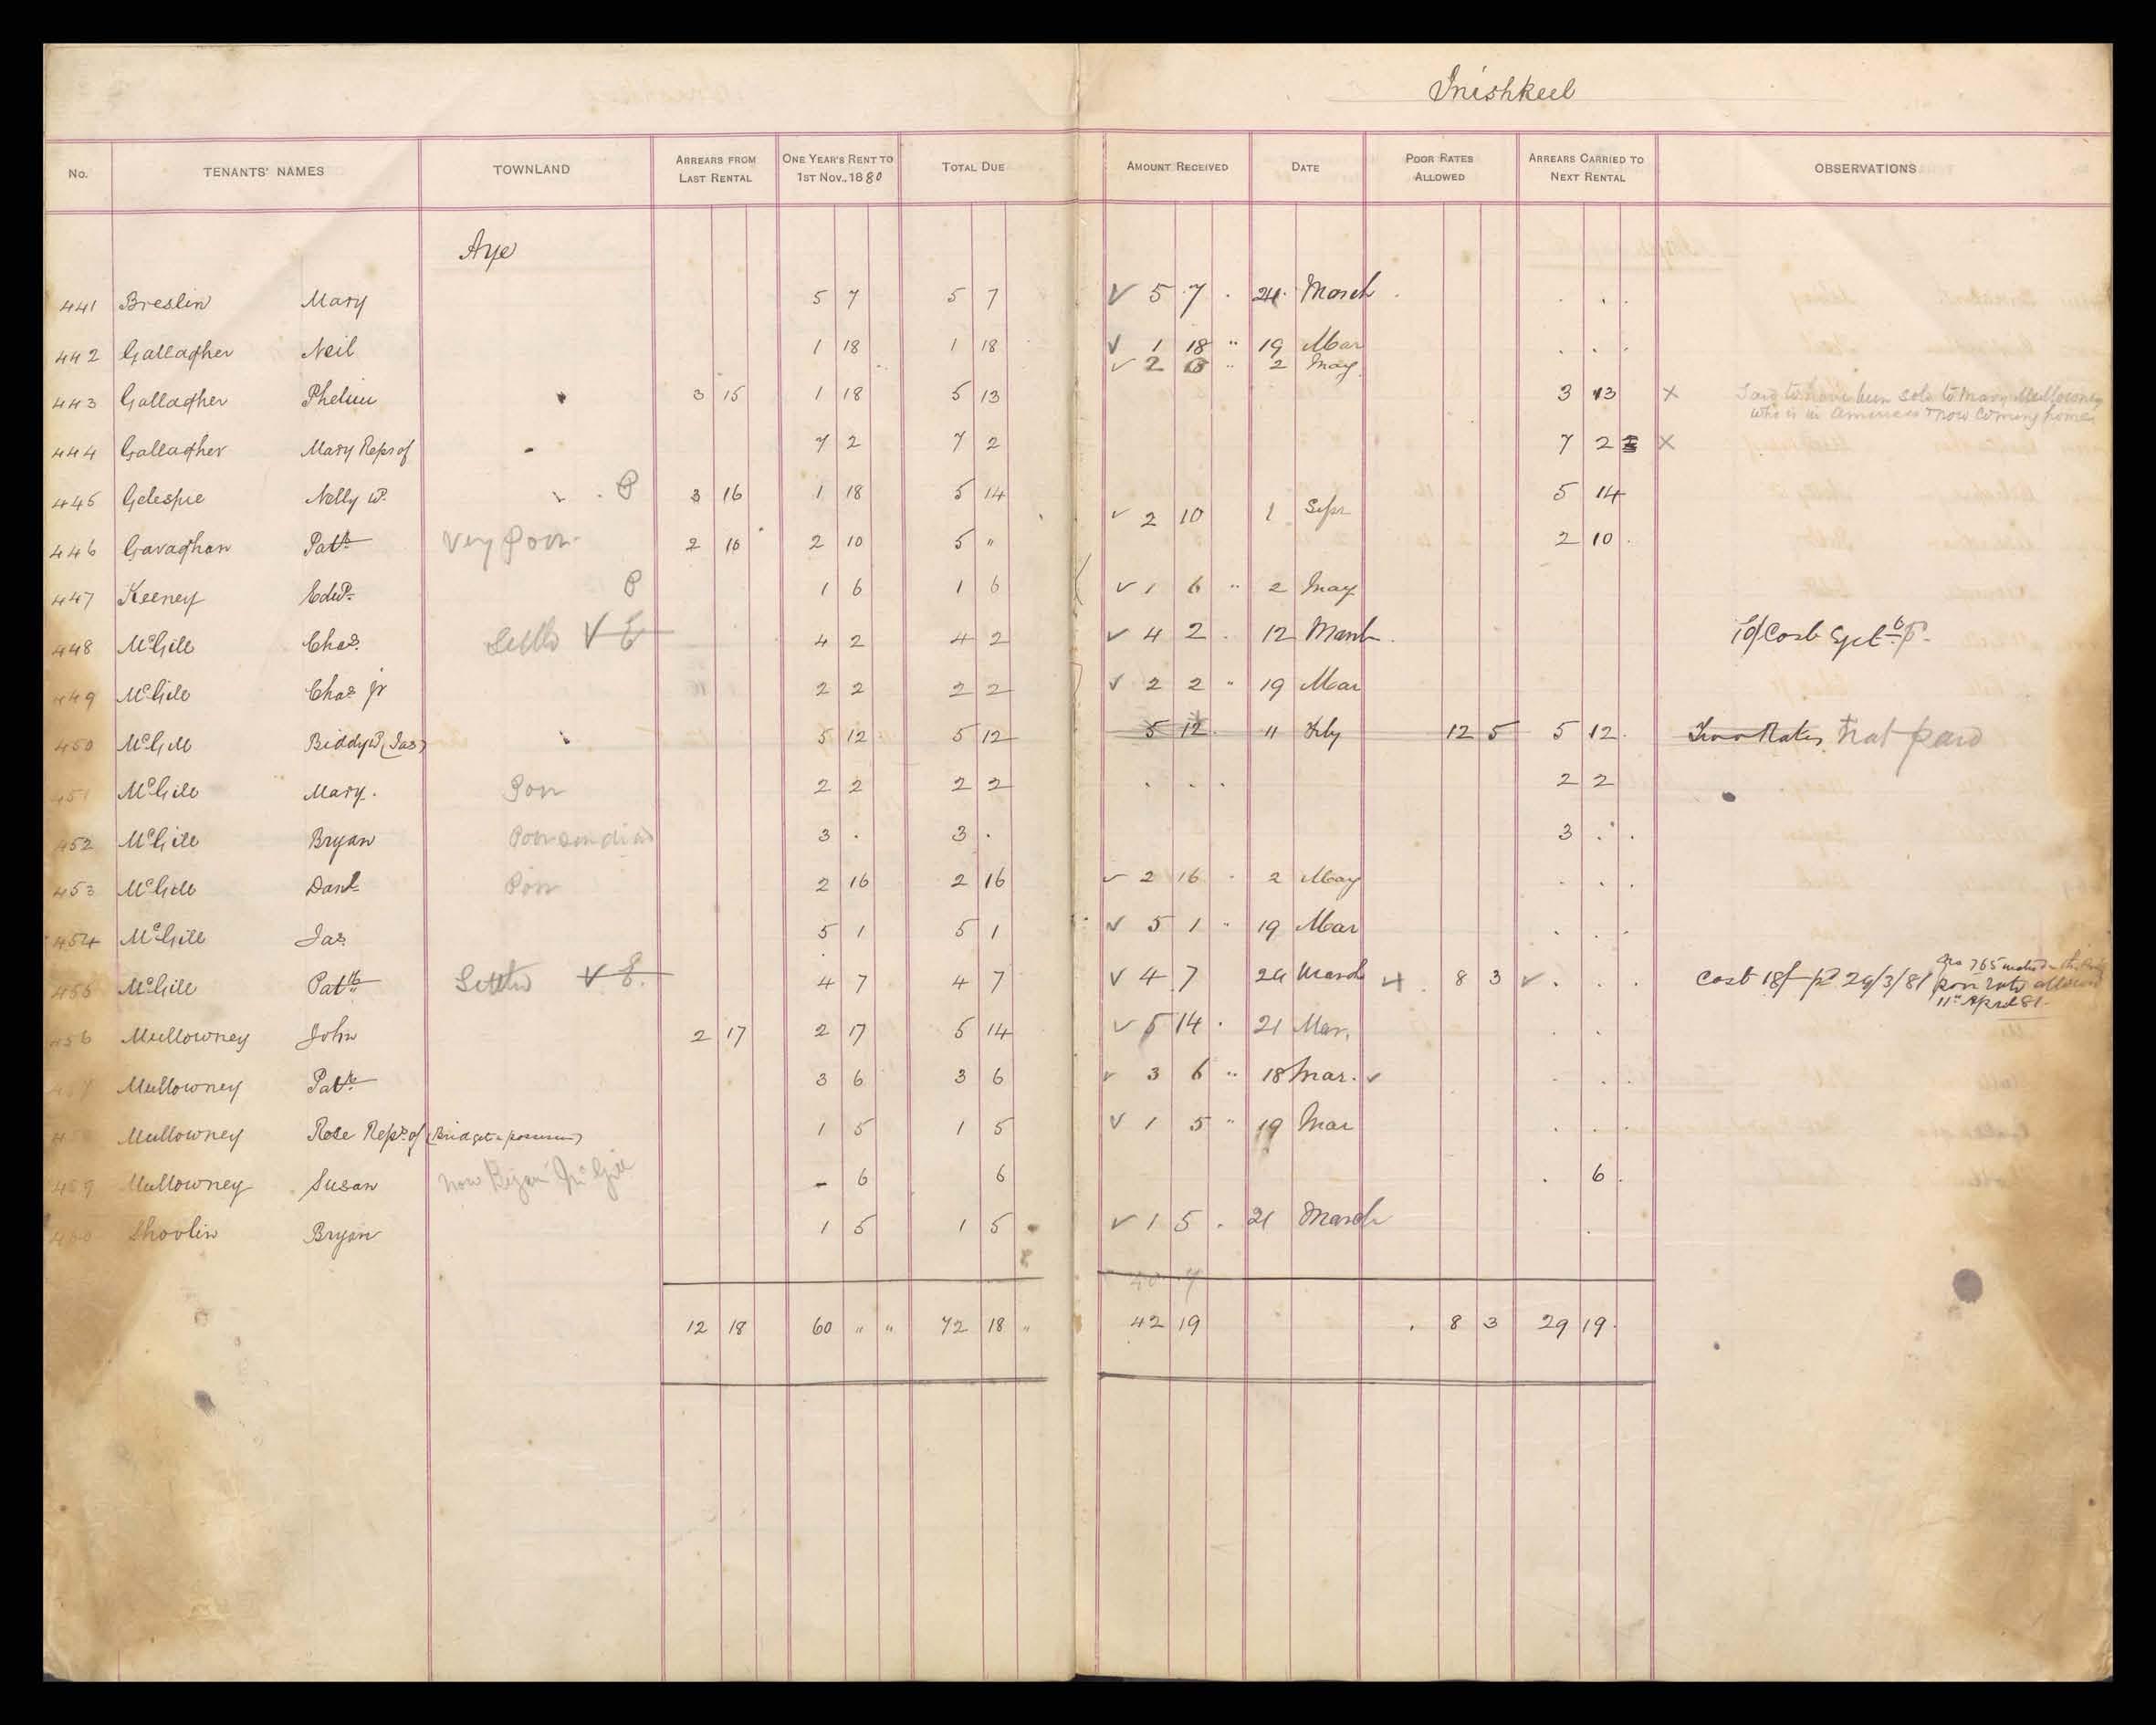 Inishkeel
No. TENANTS' NAMES TOWNLAND ARREARS FROM LAST RENTAL ONE YEAR'S RENT TO 1ST NOV., 1880 TOTAL DUE AMOUNT RECEIVED DATE POOR RATES ALLOWED ARREARS CARRIED TO NEXT RENTAL OBSERVATIONS
Aye
441 Breslin Mary 5 7 5 7 √ 5 7 . 24 March . . .
442 Gallagher Neil 1 18 1 18 √ 1 18 " 19 Mar . . .
√ 2 " 2 May
443 Gallagher Phelim 3 15 1 18 5 13 3 13 × Said to have been sold to Mary Mullowney
who is in America & now coming home
444 Gallagher Mary Reps of 7 2 7 2 7 2 ×
445 Gelespie Nelly W. P 3 16 1 18 5 14 5 14
√ 2 10 1 Sepr
446 Gavaghan Patk Very Poor 2 10 2 10 5 " 2 10 .
447 Keeney Edwd. P 1 6 1 6 √ 1 6 " 2 May
448 McGill Chas. Settled V E 4 2 4 2 √ 4 2 . 12 March . 10/ Cost
449 McGill Chas Jr 2 2 2 2 √ 2 2 " 19 Mar
450 McGill Biddy W (Jas) 5 12 5 12 5 12 . 11 Feby 12 5 5 12 . Rates not paid
451 McGill Mary . Poor 2 2 2 2 . . . 2 2
452 McGill Bryan Poor 3 . 3 . 3 . .
453 McGill Danl Poor 2 16 2 16 √ 2 16 . 2 May . . .
454 McGill Jas. 5 1 5 1 √ 5 1 " 19 Mar . . .
455 McGill Patk Settled V E. 4 7 4 7 √ 4 7 24 March . 8 3 √ . . . Cost 18/ pd 29/3/81 poor rate allowed
11th April 81.
456 Mullowney John 2 17 2 17 5 14 √ 5 14 . 21 Mar. .
457 Mullowney Patk. 3 6 3 6 √ 3 6 " 18 Mar. √ . . .
458 Mullowney Rose Reps. of (Bridget in possession) 1 5 1 5 √ 1 5 " 19 Mar . . .
459 Mullowney Susan now Bryan McGill - 6 6 . 6 .
460 Shovlin Bryan 1 5 1 5 √ 1 5 . 21 March .
40 7
12 18 60 " " 72 18 " 42 19 . 8 3 29 19 .